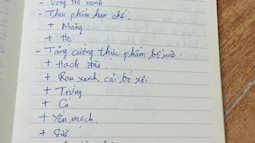 - Uống trà xanh
- Thực phẩm hạn chế:
+ Măng
+ Me
- Tăng cường thực phẩm bổ não
+ Hạch đào
+ Rau xanh, cải bó xôi
+ Trứng
+ Cá
+ Yến mạch
+ Giá